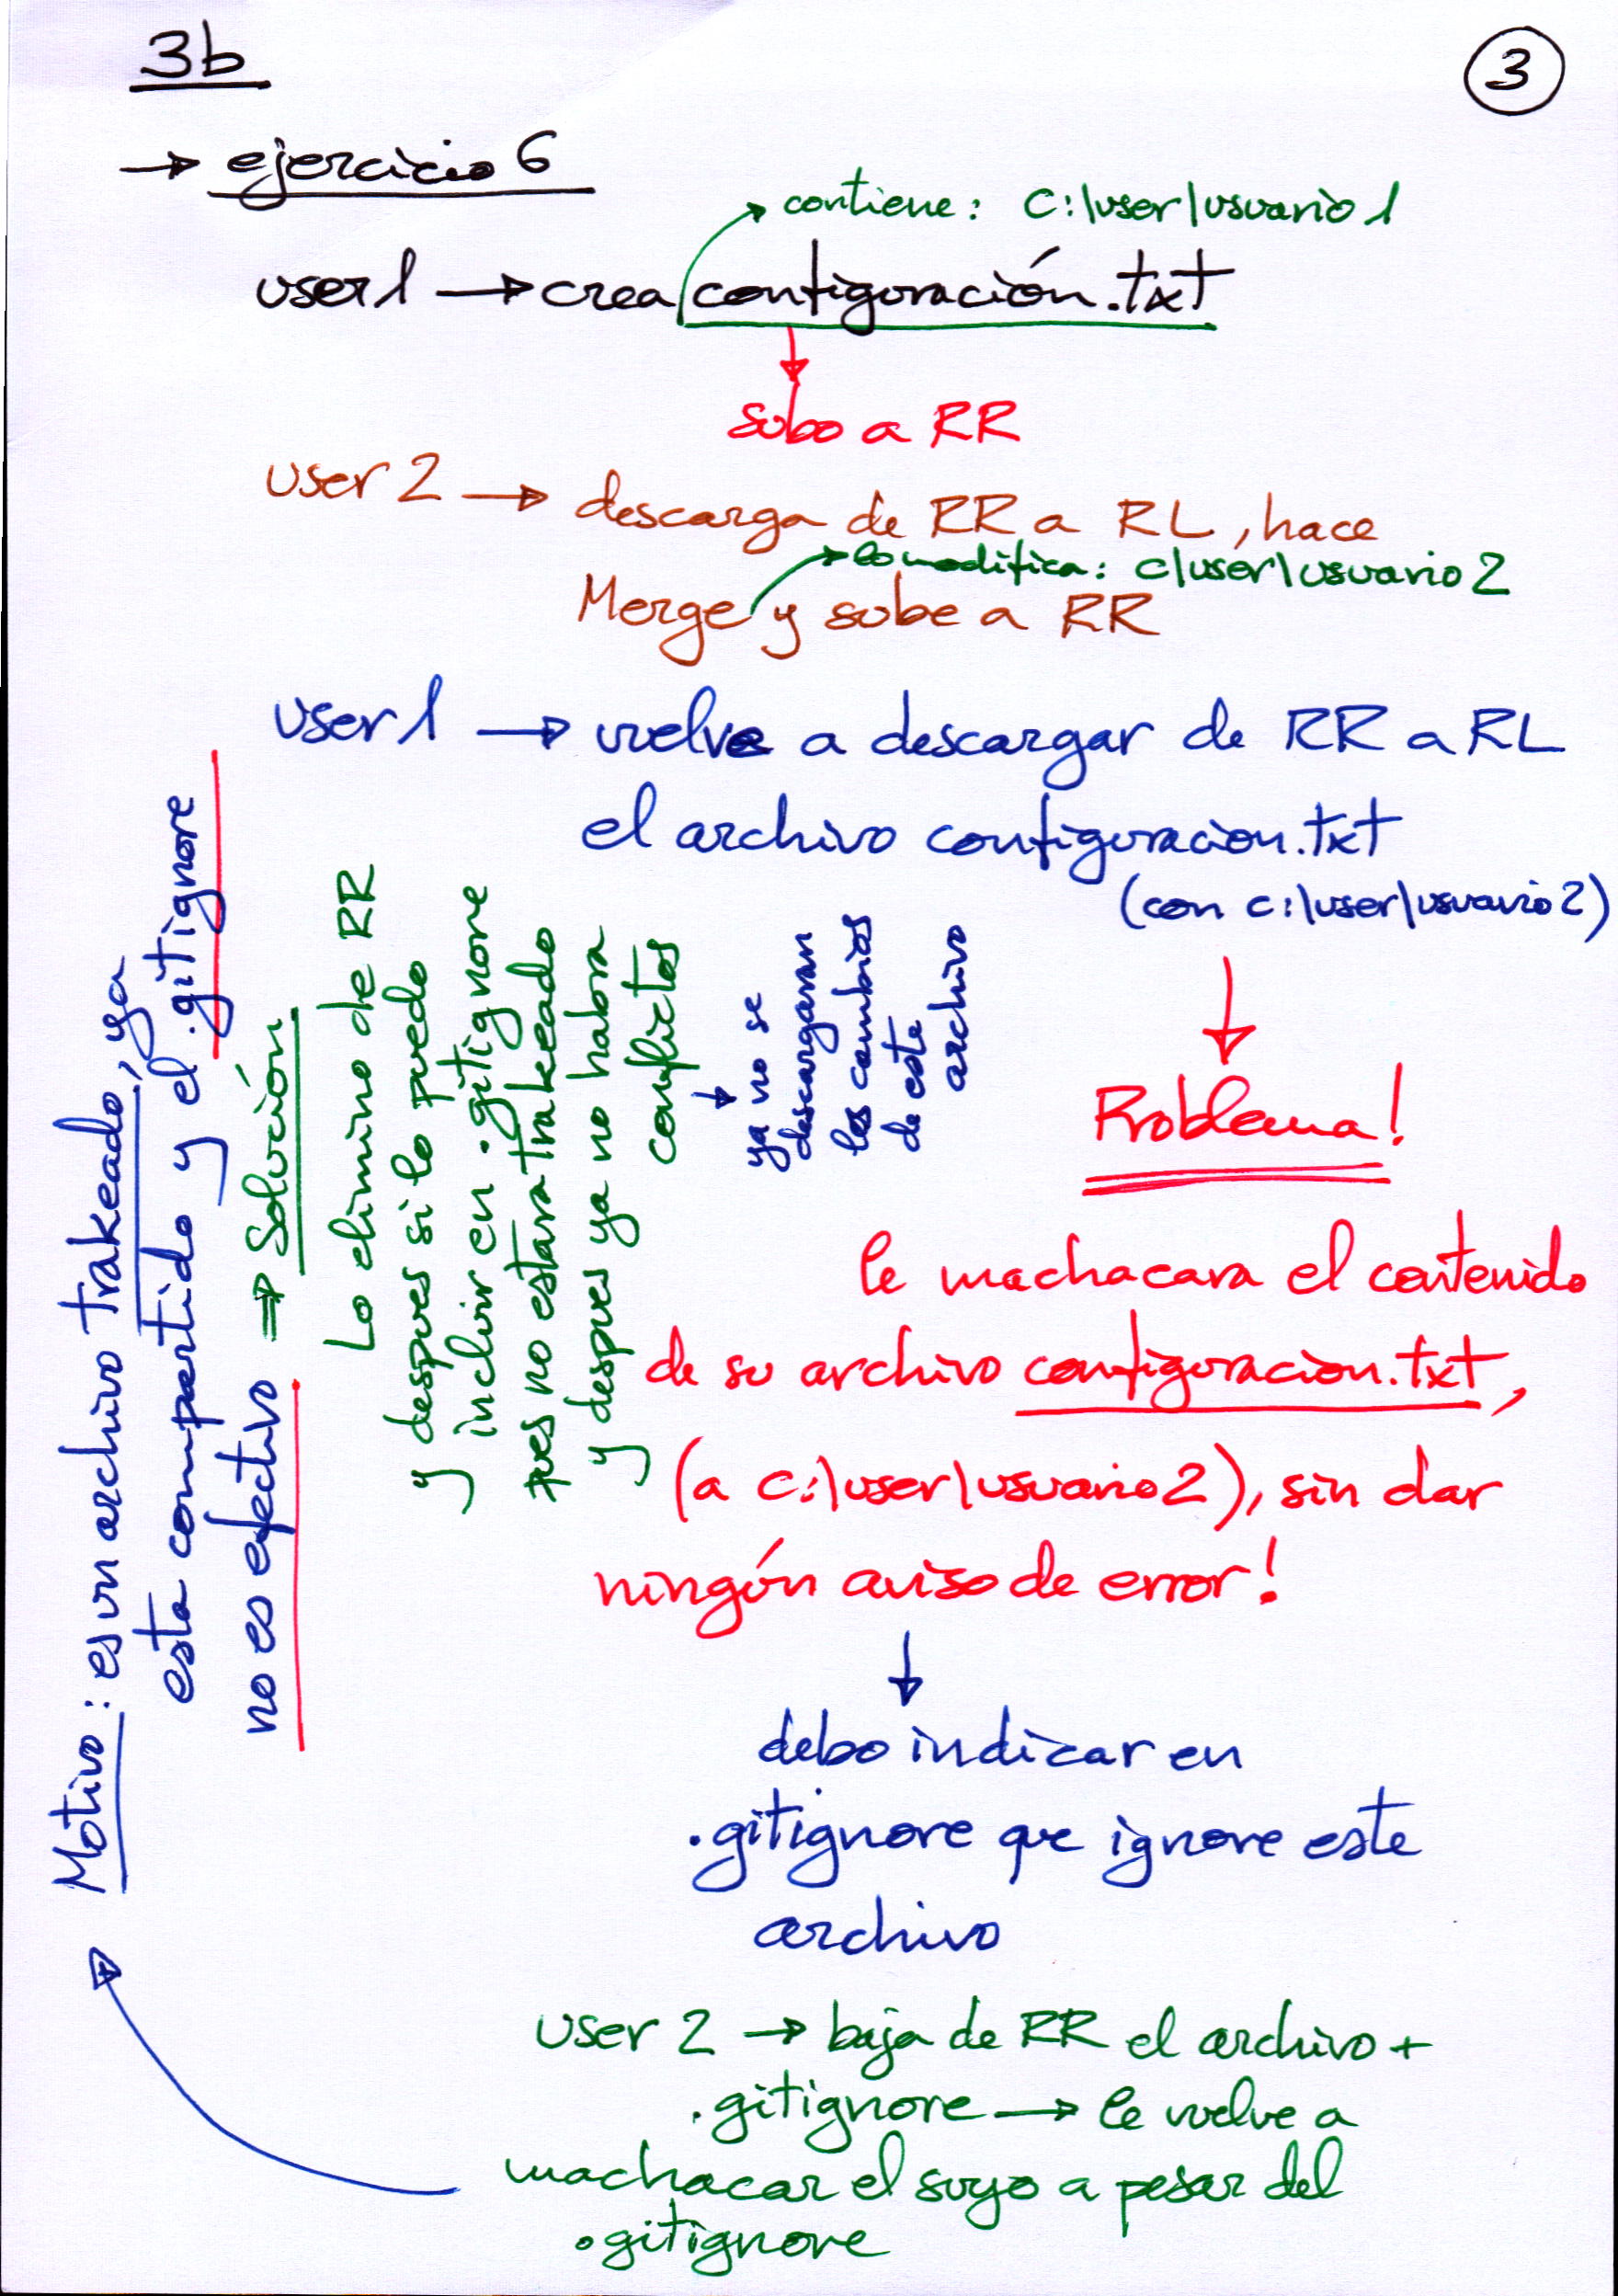 3b
3
→ ejercicio 6
contiene: C:\user\usuario1
user1 → crea configuración.txt
subo a RR
user 2 → descarga de RR a RL, hace
lo modifica: c\user\usuario2
Merge y sube a RR
user1 → vuelve a descargar de RR a RL
el archivo configuracion.txt
(con c:\user\usuario2)
Problema!
le machacara el contenido
de su archivo configuracion.txt,
(a c:\user\usuario2), sin dar
ningún aviso de error!
debo indicar en
.gitignore que ignore este
archivo
user 2 → baja de RR el archivo +
.gitignore → le vuelve a
machacar el suyo a pesar del
.gitignore
Motivo: es un archivo trakeado, ya
esta compartido y el .gitignore
no es efectivo ⇒ Solución
Lo elimino de RR
y despues si lo puedo
incluir en .gitignore
pues no estara trakeado
y despues ya no habra
conflictos
ya no se
descargaran
los cambios
de este
archivo